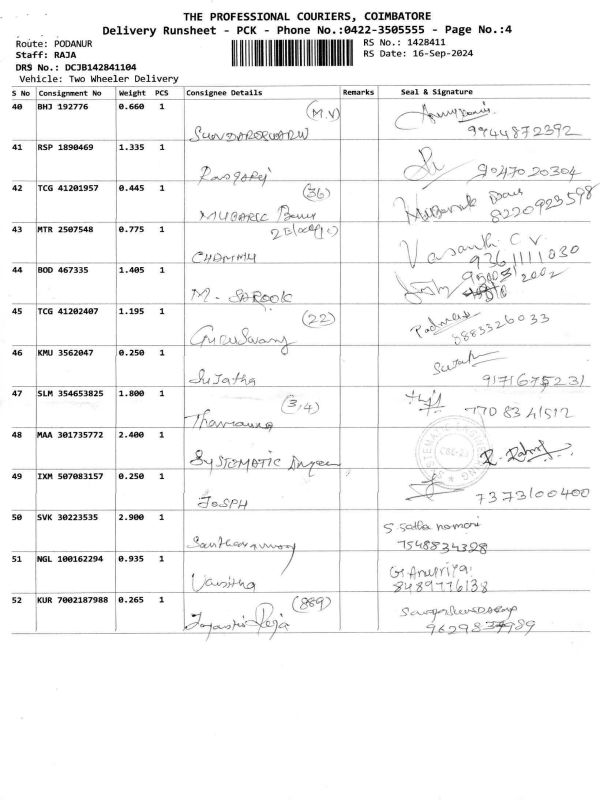 THE PROFESSIONAL COURIERS, COIMBATORE
Delivery Runsheet - PCK - Phone No.:0422-3505555 - Page No.:4
Route: PODANUR
RS No.: 1428411
Staff: RAJA
RS Date: 16-Sep-2024
DRS No.: DCJB142841104
Vehicle: Two Wheeler Delivery
S No Consignment No Weight PCS Consignee Details Remarks Seal & Signature
40 BHJ 192776 0.660 1 (M.V)
9944872392
41 RSP 1890469 1.335 1
9047020304
42 TCG 41201957 0.445 1 (36)
MUBARIC Mubarak
8220923598
43 MTR 2507548 0.775 1
CHAMMY Vasanth C.V.
9361111030
44 BOD 467335 1.405 1
M. SAROOK
45 TCG 41202407 1.195 1 (22)
GuruSwamy
8883326033
46 KMU 3562047 0.250 1
SuJatha
9171675231
47 SLM 354653825 1.800 1 (3,4)
7708341512
48 MAA 301735772 2.400 1
SYSTEMATIC
49 IXM 507083157 0.250 1
JOSPH 7373100400
50 SVK 30223535 2.900 1
7548834328
51 NGL 100162294 0.935 1
G. Anupriya
8489776138
52 KUR 7002187988 0.265 1 (889)
Raja